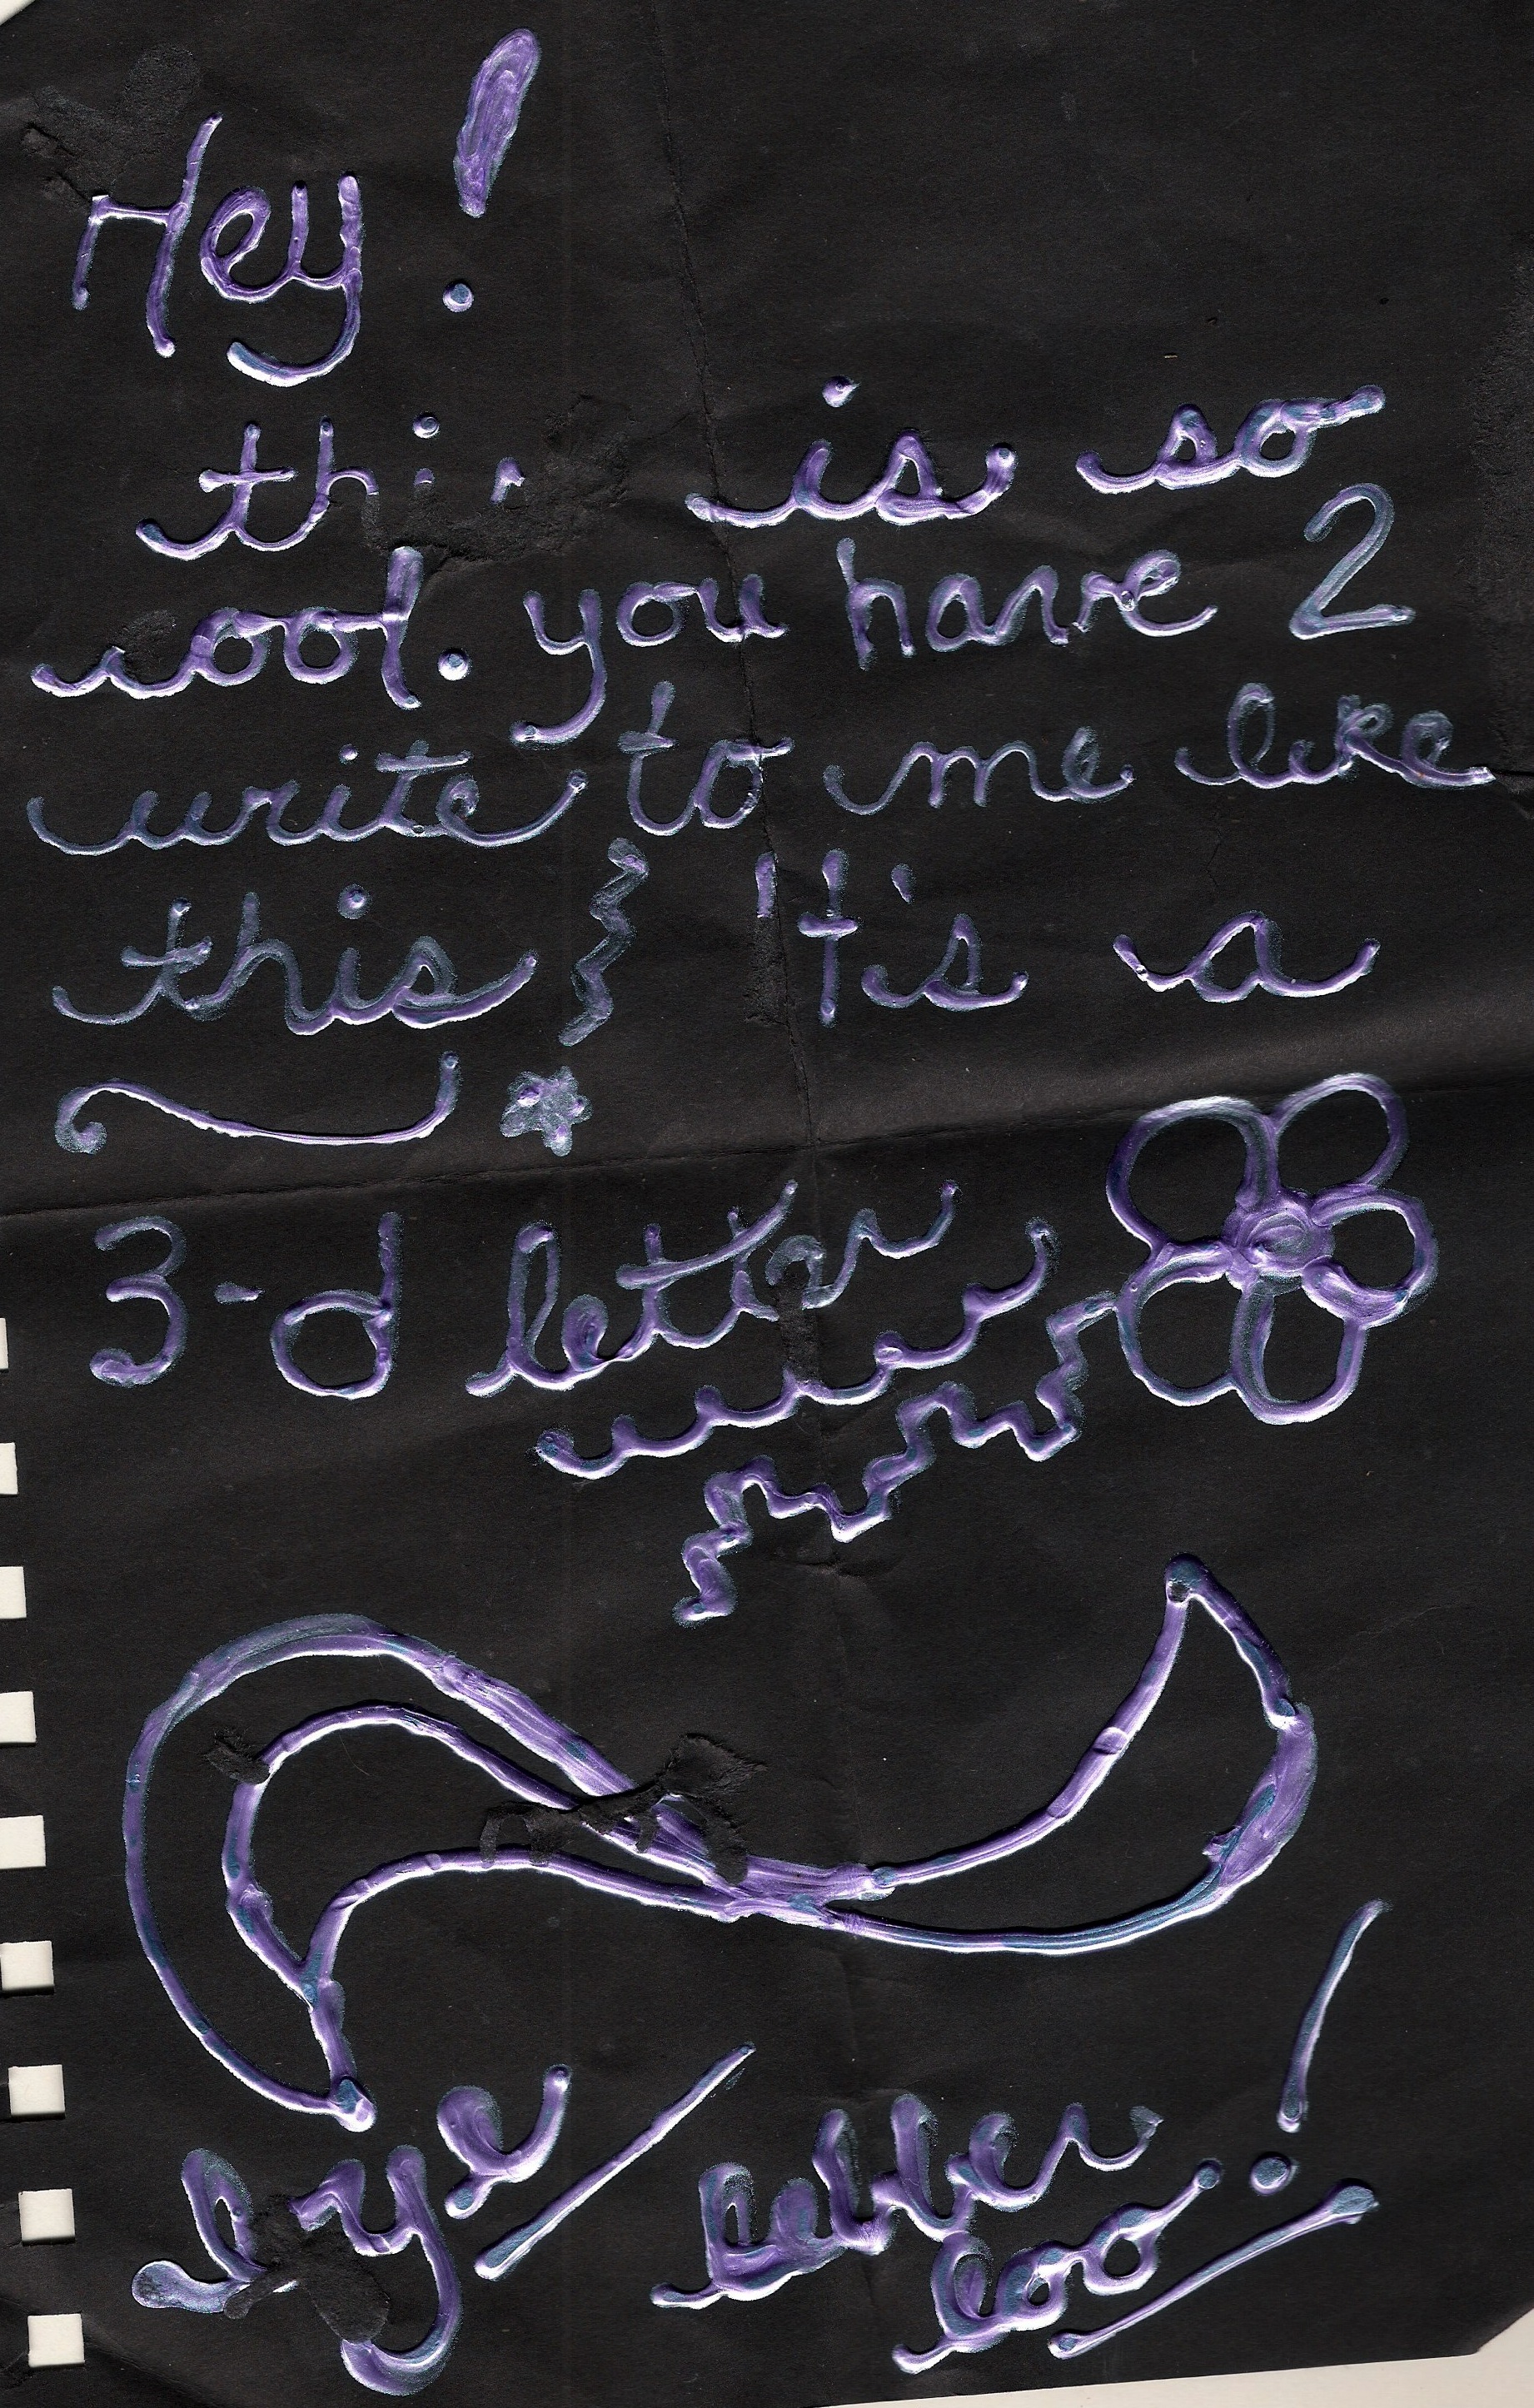 Hey!
this is so
cool. you have 2
write to me like
this It's a
3-d letter
bye